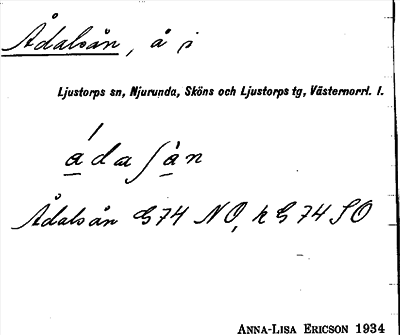 Ådalsån, å i
Ljustorps sn, Njurunda, Sköns och Ljustorps tg, Västernorrl. l.
ádaʃàn
Ådalsån G74 NO, k G74 SO
ANNA-LISA ERICSON 1934